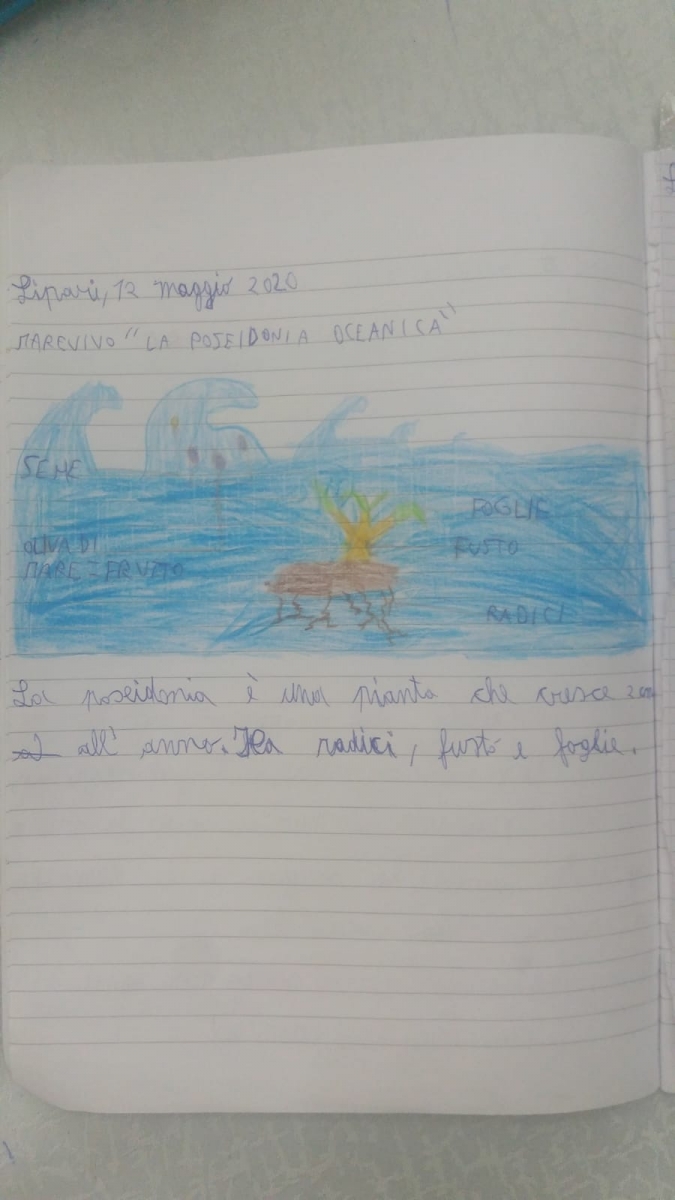 Lipari, 12 maggio 2020
MAREVIVO "LA POSEIDONIA OCEANICA"
SEME
FOGLIE
OLIVA DI
MARE = FRUTTO
FUSTO
RADICI
La poseidonia è una pianta che cresce 2 cm
all' anno. Ha radici, fusto e foglie.